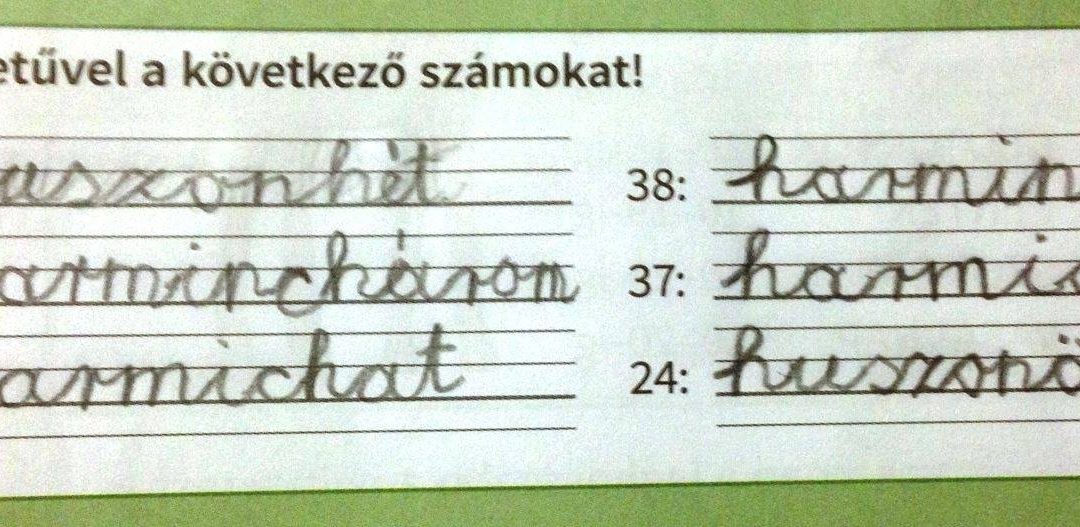 etűvel a következő számokat!
uszonhét 38: harmin
armincháron 37: harmis
armichat 24: huszonö